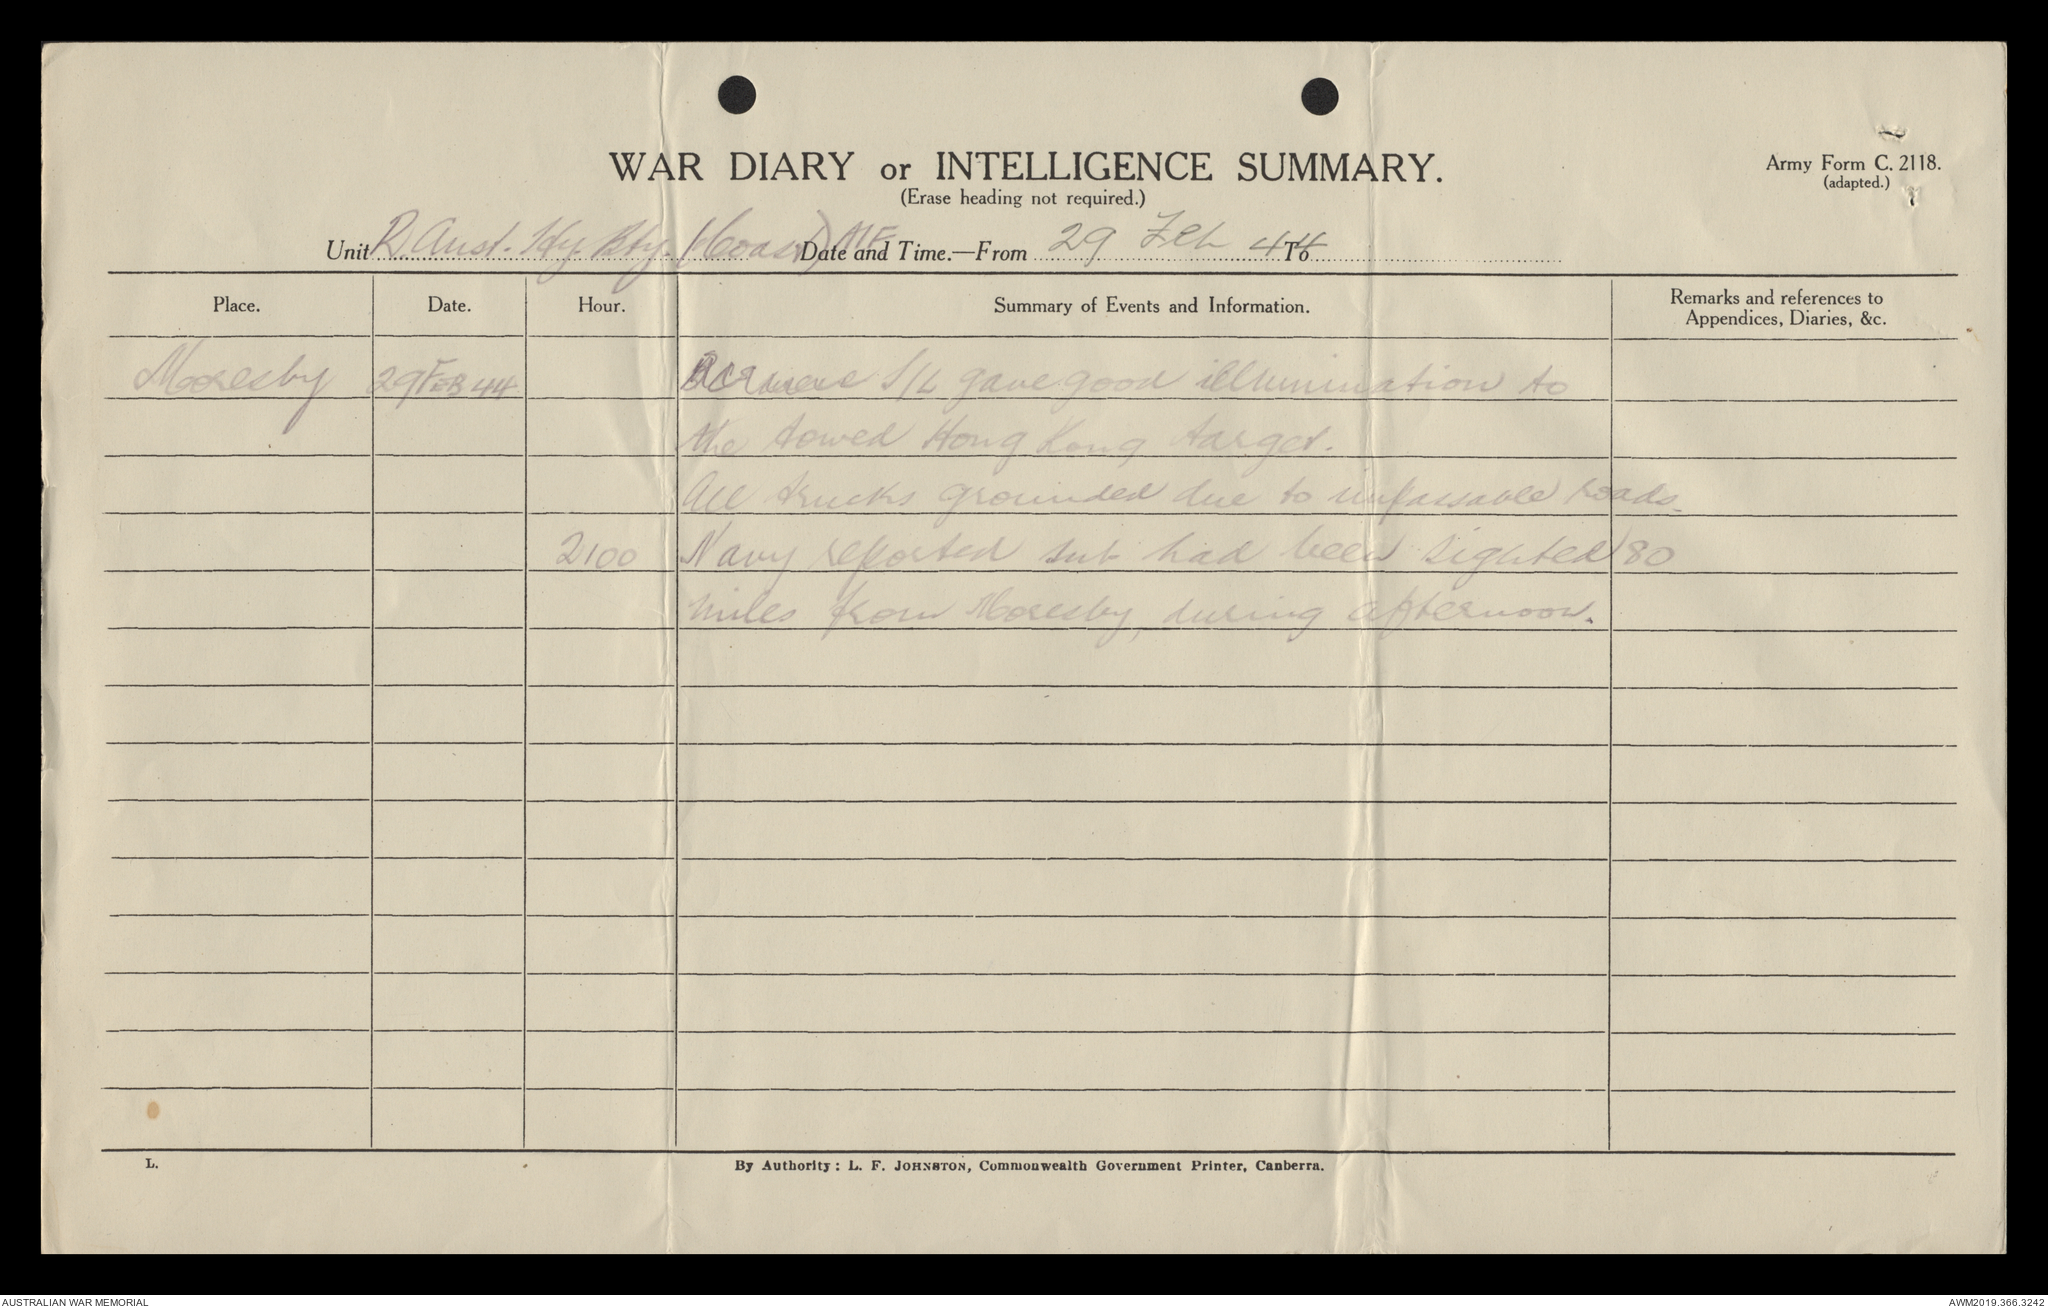 WAR DIARY or INTELLIGENCE SUMMARY.
Army Form C. 2118.
(adapted.)
(Erase heading not required.)
Unit R. Aust. Hy. Bty. (Coast) AIF Date and Time.—From 29 Feb 44 To
Place. Date. Hour. Summary of Events and Information. Remarks and references to Appendices, Diaries, &c.
Moresby 29 FEB 44 S/L gave good illumination to
the towed Hong Kong target.
All trucks grounded due to impassable roads.
2100 Navy reported sub had been sighted 80
miles from Moresby, during afternoon.
L.
By Authority: L. F. JOHNSTON, Commonwealth Government Printer, Canberra.
AUSTRALIAN WAR MEMORIAL
AWM2019.366.3242